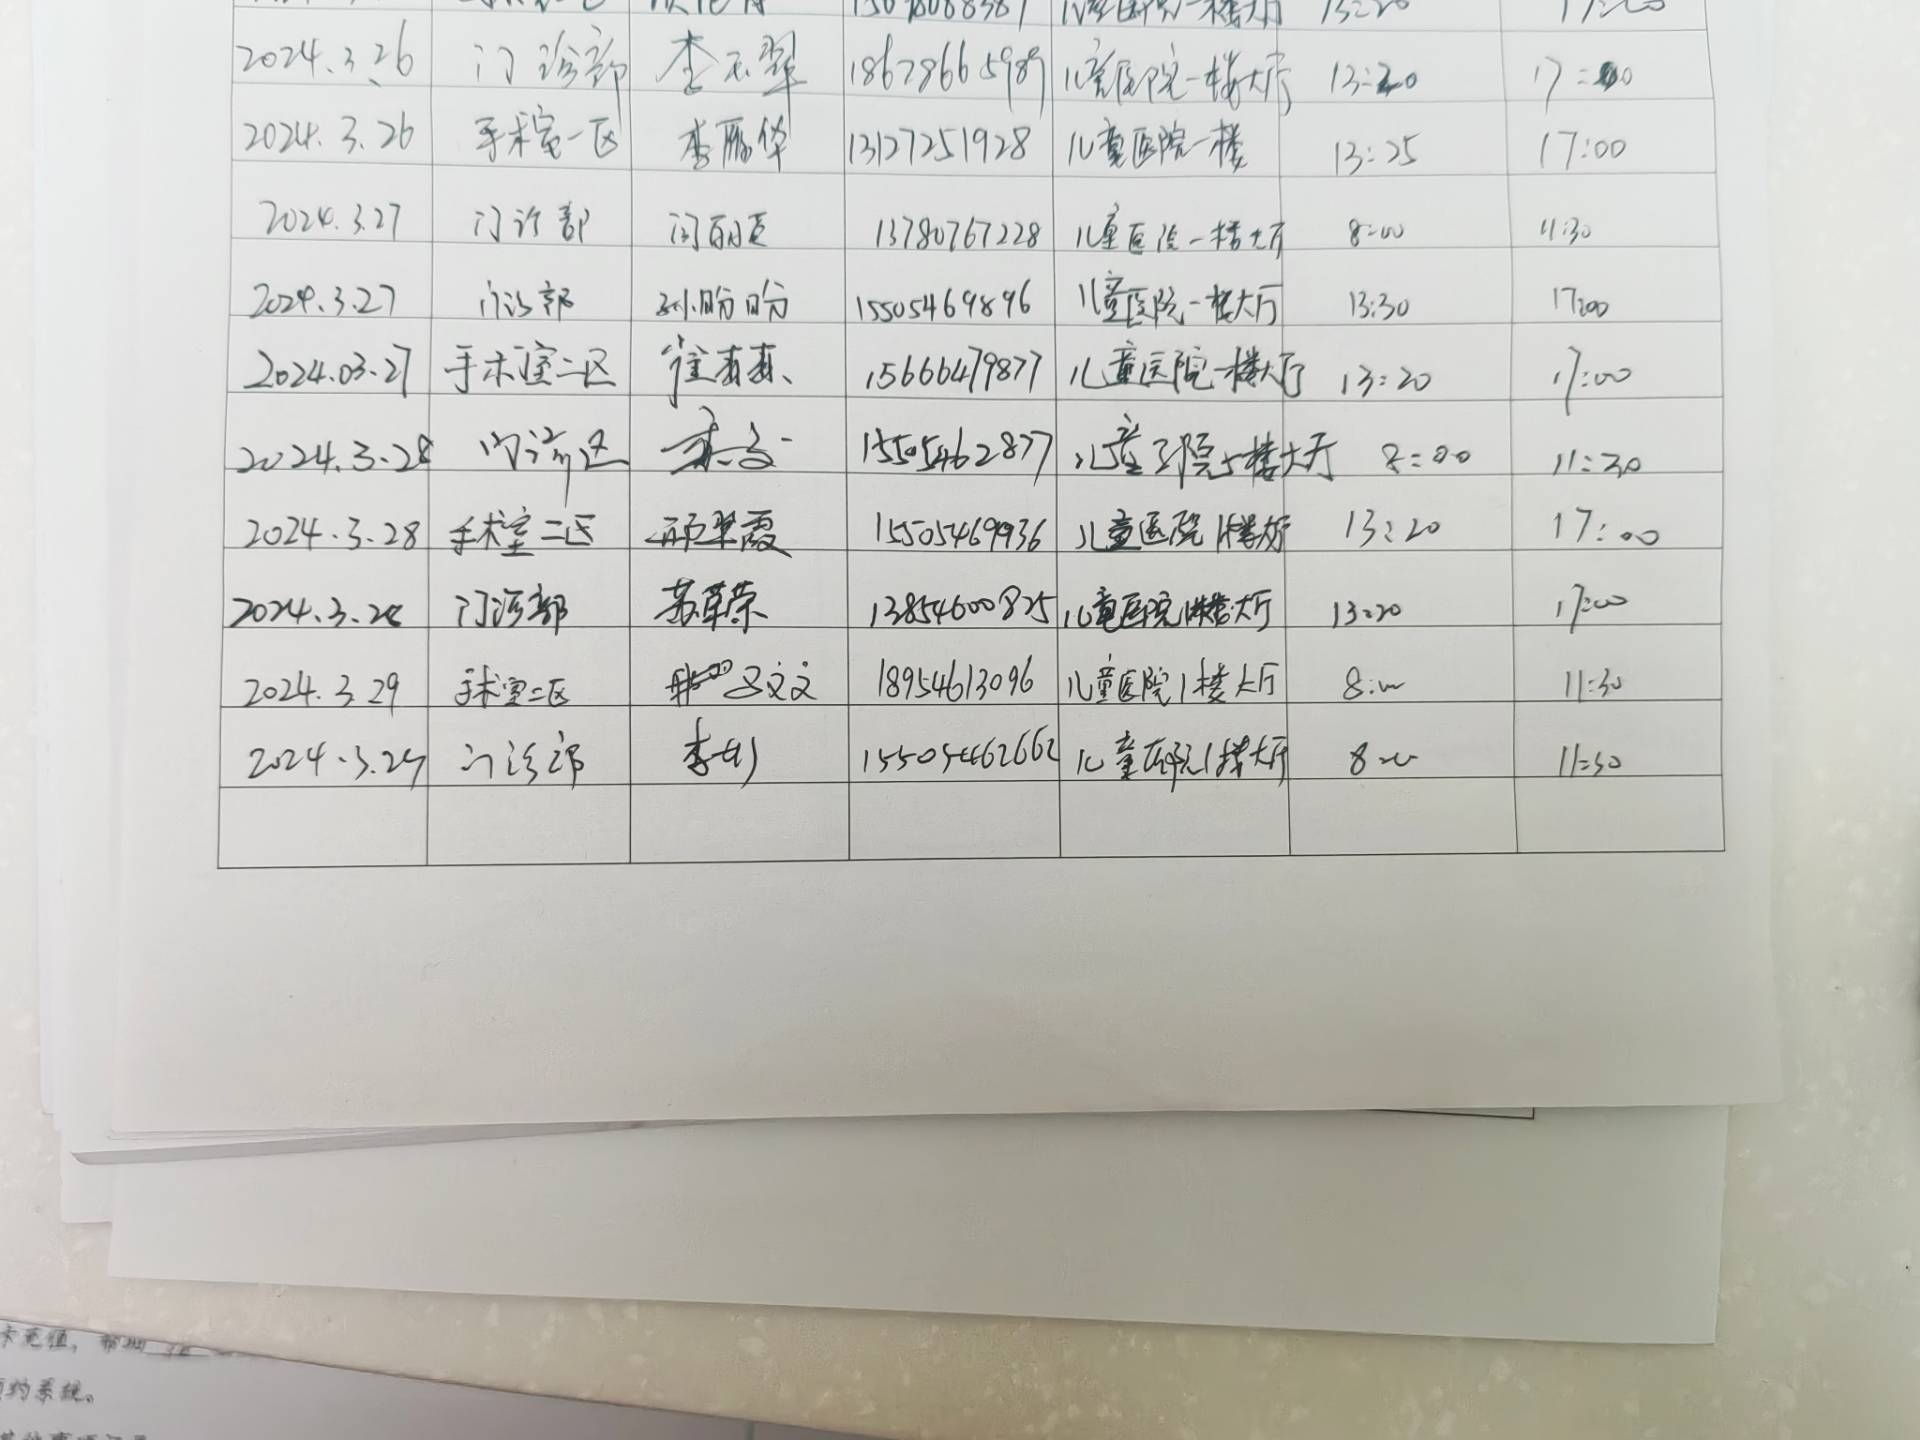 15 儿童医院一楼大厅 13:20 17:00
2024.3.26 门诊部 李玉翠 18678665989 儿童医院一楼大厅 13:20 17:00
2024.3.26 手术室一区 李雁华 13127251928 儿童医院一楼 13:25 17:00
2024.3.27 门诊部 13780767228 儿童医院一楼大厅 8:00 11:30
2024.3.27 门诊部 孙盼盼 15505469896 儿童医院一楼大厅 13:30 17:00
2024.03.27 手术室二区 15666479877 儿童医院一楼大厅 13:20 17:00
2024.3.28 门诊区 15505462877 儿童医院一楼大厅 8:00 11:30
2024.3.28 手术室二区 顾翠霞 15505469936 儿童医院1楼大厅 13:20 17:00
2024.3.28 门诊部 苏草荣 13854600825 儿童医院1楼大厅 13:20 17:00
2024.3.29 手术室二区 吕文文 18954613096 儿童医院1楼大厅 8:00 11:30
2024.3.29 门诊部 李 15505462662 儿童医院1楼大厅 8:00 11:30
卡充值,帮助
约系统。